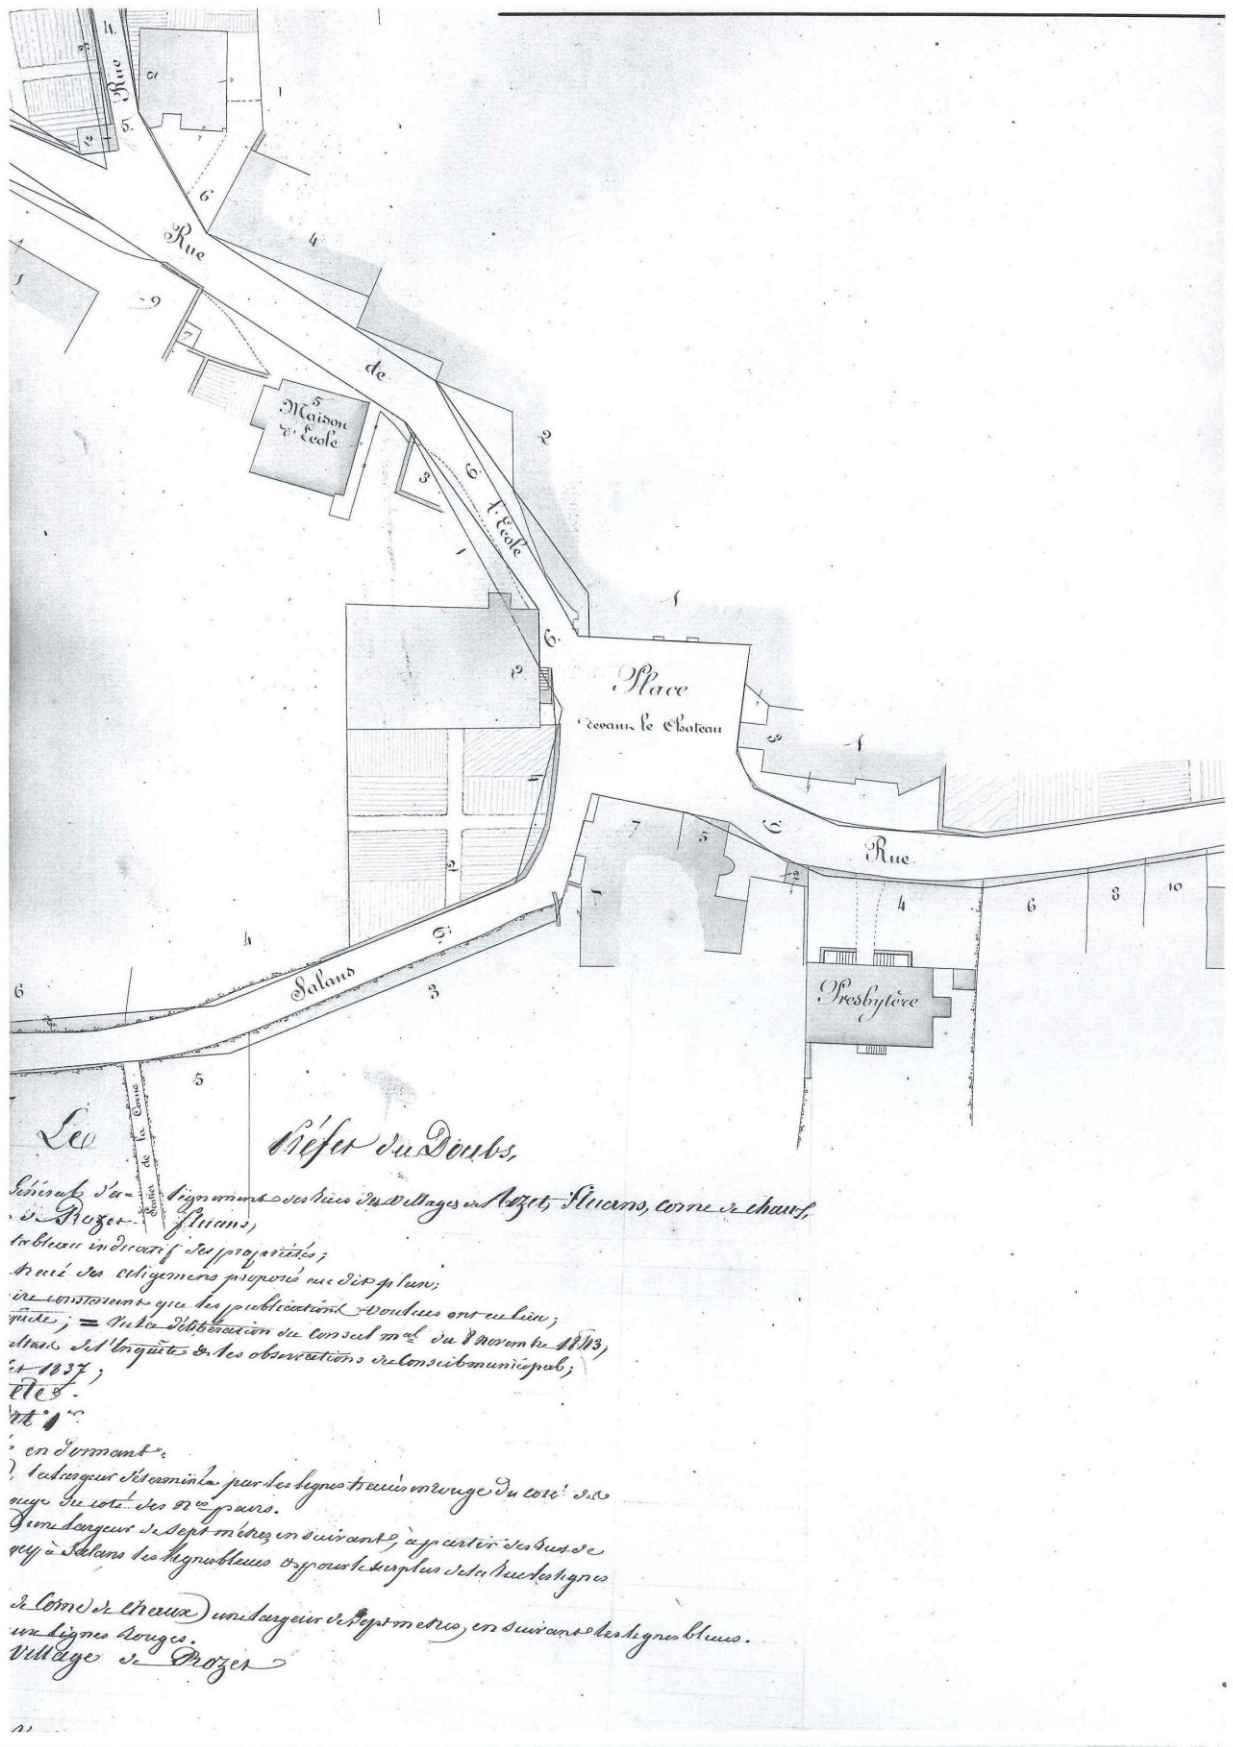 4.
Rue
5.
2
6
Rue
4
1
9
7
de
5
Maison
d'Ecole
3
6
2
l'Ecole
1
1
6.
2
Place
devant le Chateau
3
1
4
7
5
6
Rue
2
1
4
6
8
10
4
6.
Salans
3
6
Presbytère
5
Sentier de la Corne
Le Préfet du Doubs,
Général d'alignement des Rues des Villages de Rozet, fluans, corne de chaux,
de Rozet fluans,
tableau indicatif des propriétés;
tracé des alignemens proposés au dit plan;
constatant que les publications voulues ont eu lieu;
= Vu la délibération du Conseil mal du 8 novembre 1843,
de l'Enquête & les observations du Conseil municipal;
1837;
Art 1er
en donnant:
la largeur déterminée par les lignes tracées en rouge du coté des
rouge du coté des nos pairs.
une largeur de sept mètres en suivant, à partir des rues de
à Salans les lignes bleues & pour le surplus de la Rue les lignes
de Corne de Chaux) une largeur de sept metres, en suivant les lignes bleues.
aux lignes Rouges.
Village de Rozet